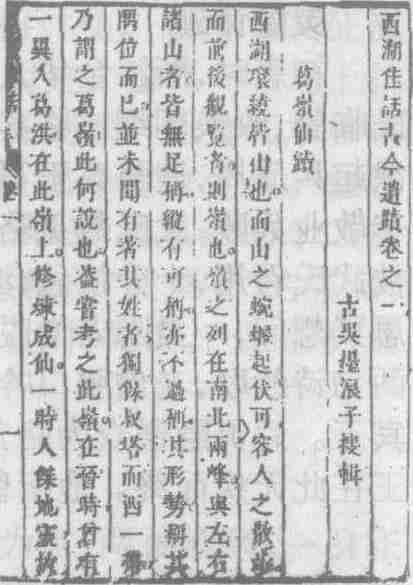 西湖佳話古今遺蹟卷之一
古吳墨浪子搜輯
葛嶺仙蹟
西湖環繞皆山也而山之蜿蜒起伏可容人之散步
而前後觀覽者則嶺也嶺之列在南北兩峰與左右
諸山者皆無足稱縱有可稱亦不過稱其形勢稱其
隅位而已並未聞有著其姓者獨保叔塔而西一帶
乃謂之葛嶺此何說也蓋嘗考之此嶺在晉時曾有
一異人葛洪在此嶺上修煉成仙一時人傑地靈故